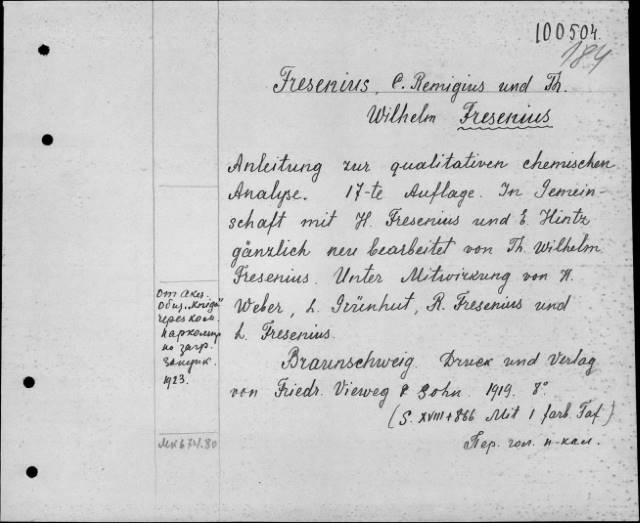 100504.
184
Fresenius, C. Remigius und Th.
Wilhelm Fresenius
Anleitung zur qualitativen chemischen
Analyse. 17-te Auflage. In Gemein-
schaft mit H. Fresenius und E. Hintz
gänzlich neu bearbeitet von Th. Wilhelm
Fresenius. Unter Mitwirkung von H.
Weber, L. Grünhut, R. Fresenius und
L. Fresenius.
Braunschweig. Druck und Verlag
von Friedr. Vieweg & Sohn. 1919. 8°
(S. XVIII+866 Mit 1 farb. Taf.)
Пер. гол. н-кал.
от акц.
Общ. „Книга"
через ком.
наркомпр.
по загр.
закупк.
1923.